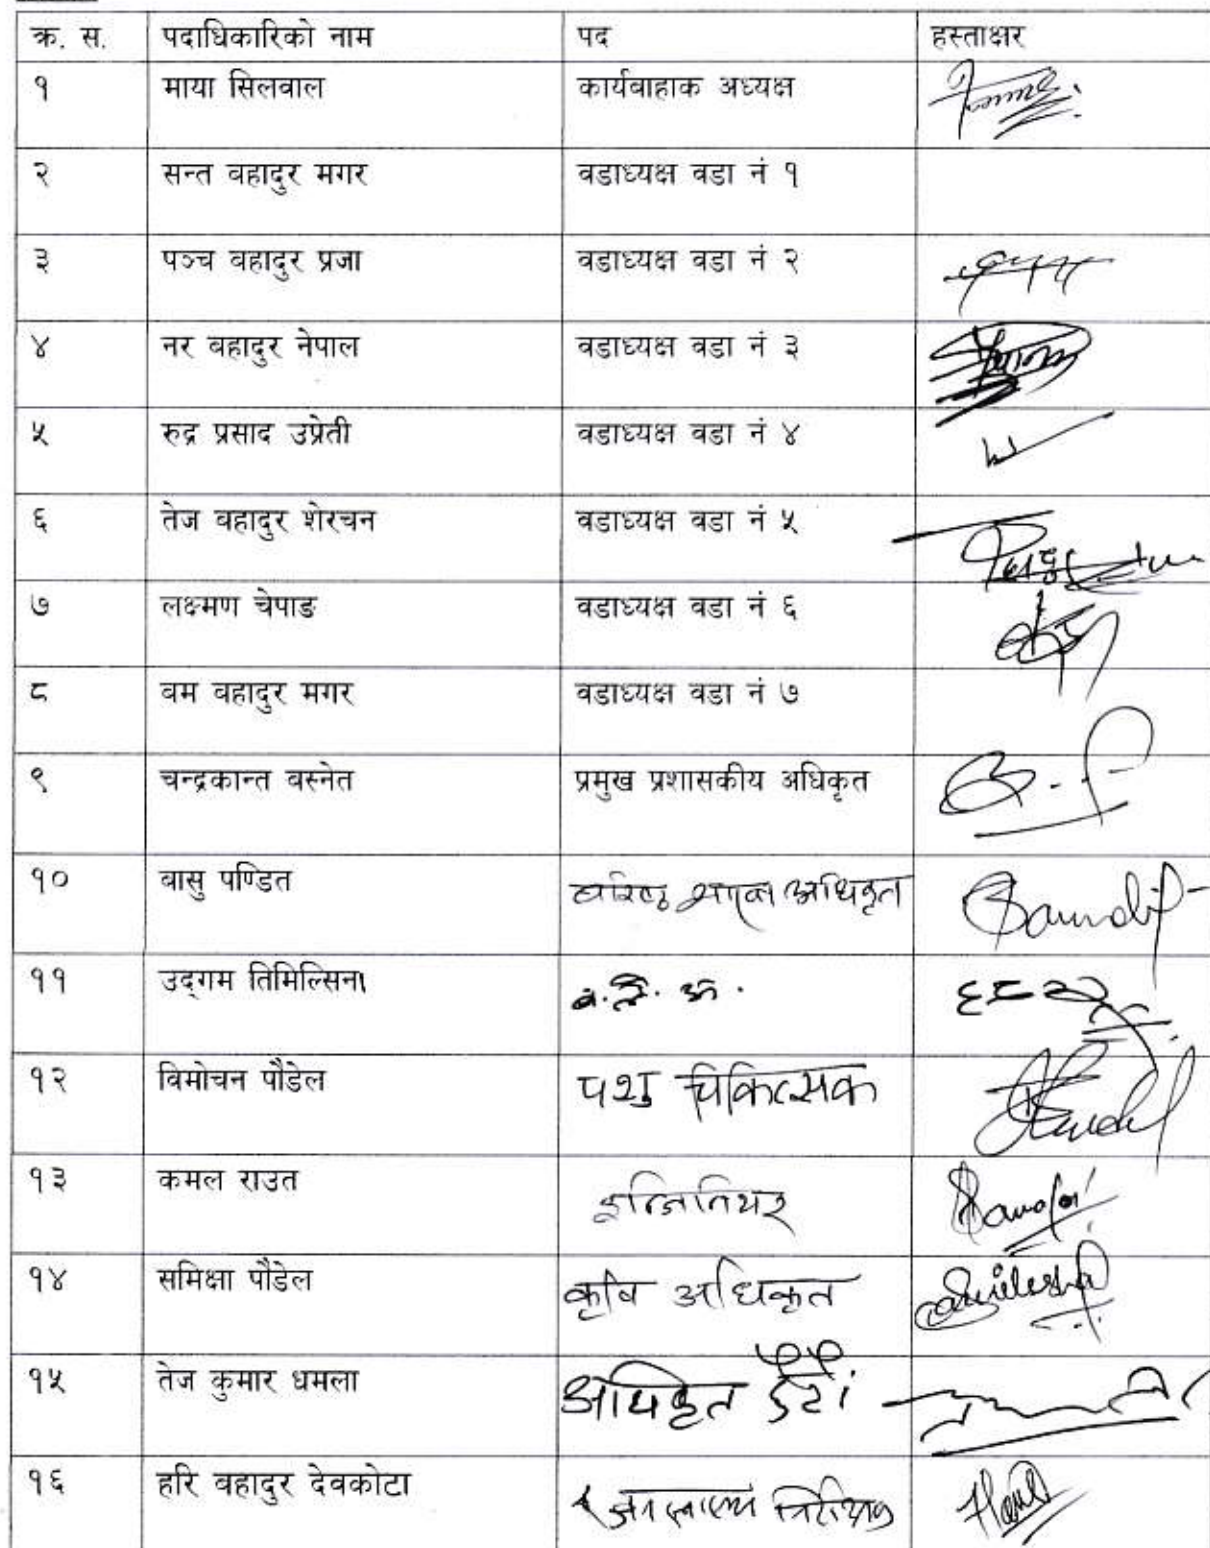 क्र. स. पदाधिकारिको नाम पद हस्ताक्षर
१ माया सिलवाल कार्यबाहाक अध्यक्ष
२ सन्त बहादुर मगर वडाध्यक्ष वडा नं १
३ पञ्च बहादुर प्रजा वडाध्यक्ष वडा नं २
४ नर बहादुर नेपाल वडाध्यक्ष वडा नं ३
५ रुद्र प्रसाद उप्रेती वडाध्यक्ष वडा नं ४
६ तेज बहादुर शेरचन वडाध्यक्ष वडा नं ५
७ लक्ष्मण चेपाङ वडाध्यक्ष वडा नं ६
८ बम बहादुर मगर वडाध्यक्ष वडा नं ७
९ चन्द्रकान्त बस्नेत प्रमुख प्रशासकीय अधिकृत
१० बासु पण्डित अधिकृत
११ उद्गम तिमिल्सिना
१२ विमोचन पौडेल पशु चिकित्सक
१३ कमल राउत इन्जिनियर
१४ समिक्षा पौडेल कृषि अधिकृत
१५ तेज कुमार धमला अधिकृत
१६ हरि बहादुर देवकोटा